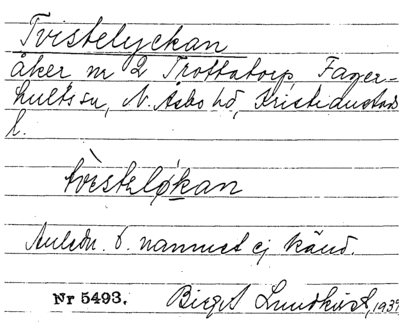 Tvistelyckan
åker nr 2 Trottatorp, Fager-
hults sn, N. Åsbo hd, Kristianstads
l.
tvèsteløkan
Anledn. t. namnet ej känd.
Nr 5493. Birgit Lundkvist, 1937